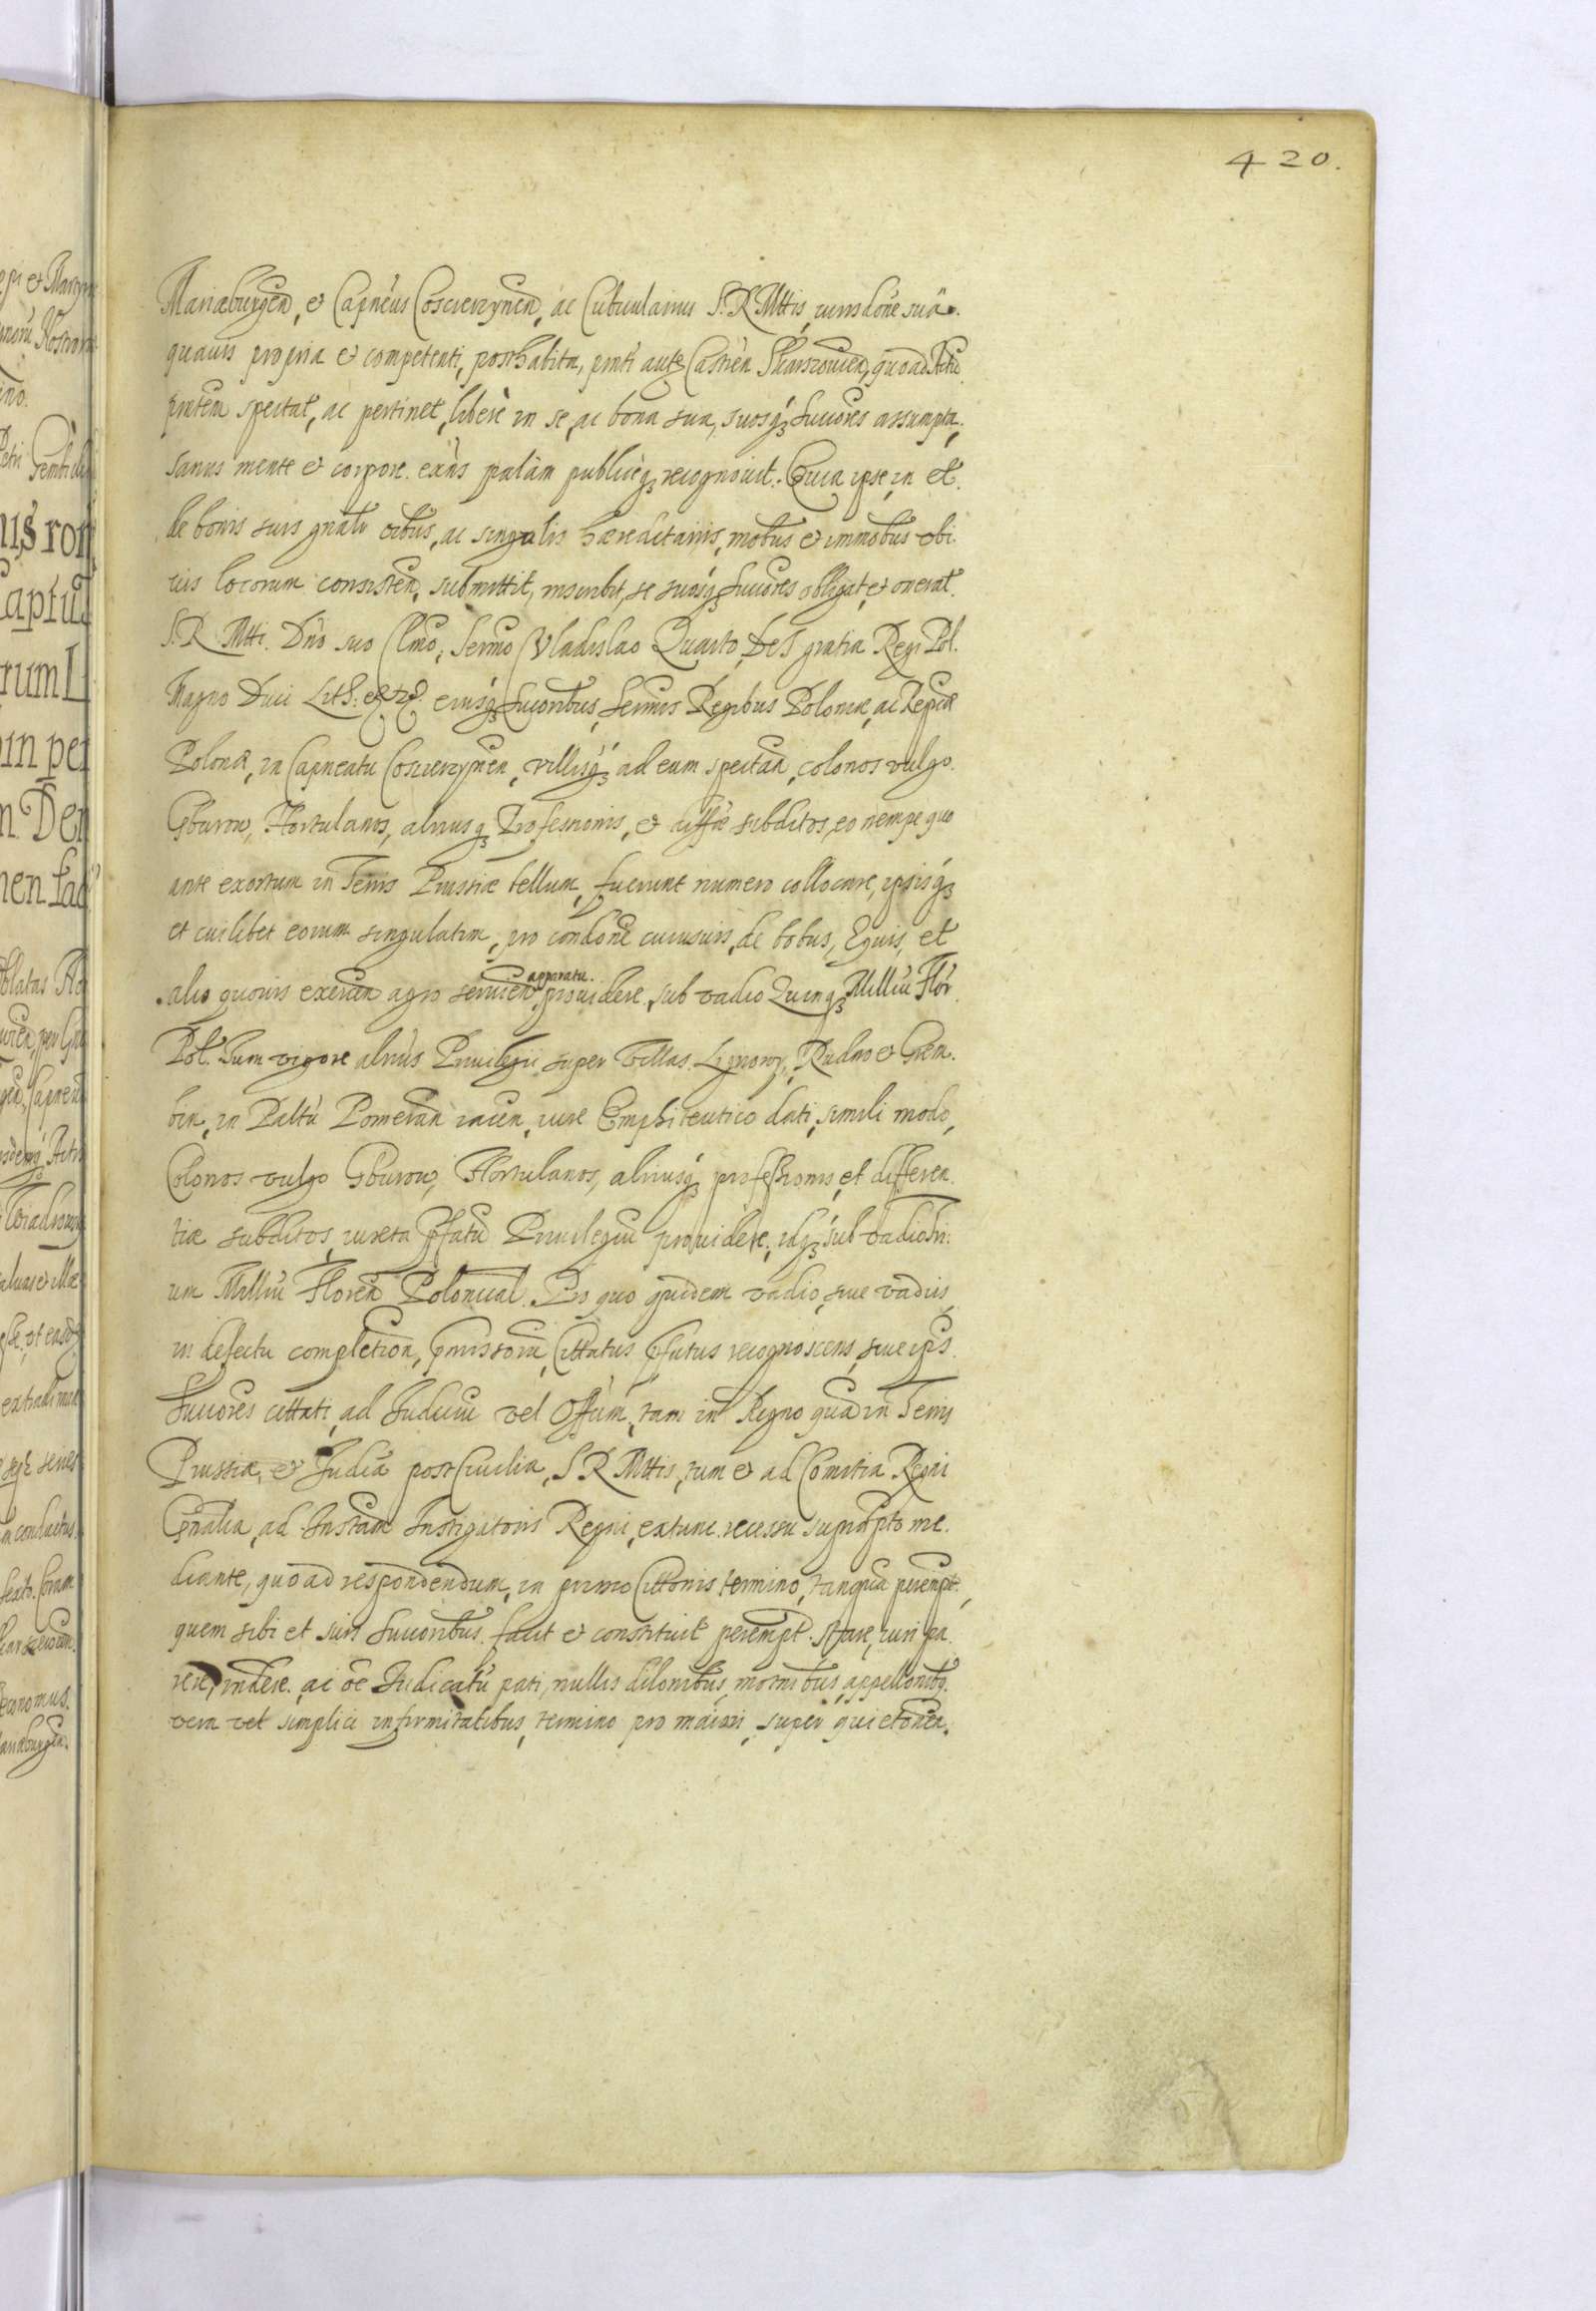 420.
Mariæburgen, et Capneus Coscierzynen, ac Cubicularius S. R. Mttis, iurisdone suâ.
quauis propria et competenti, posthabita, pnti aute Castren Skarszouien, quoad Actu
pntem spectat, ac pertinet, liberè in se, ac bona sua, suosq3 Succores assumpta,
sanus mente et corpore exñs palàm publicèq3 recognouit. Quia ipse, in et
de bonis suis gnalr oibus, ac singulis hæreditariis, mobus et immobus vbi
uis locorum consisten, submittit, inscribit, se suosq3 Succores obligat, et onerat.
S. R. Mtti. Dno suo Clmo, Sermo Vladislao Quarto, Dei gratia Regi Pol.
Magno Duci Lith: etc. eiusq3 Succoribus, Sermis Regibus Poloniæ, ac Reipcæ
Polonæ, in Capneatu Coscierzynen, villisq3 ad eum spectan, colonos vulgo
Gburow, Hortulanos, aliusq3 Professionis, et diffæ subditos, eo nempe quo
ante exortum in Terris Prussiæ bellum, fuerunt numero collocare, ipsisq3
et cuilibet eorum singulatim, pro condone cuiusuis, de bobus, Equis, et
alio quouis exercen agro seruien apparatu. prouidere, sub vadio Quinq3 Milliu Flor
Pol. Tum vigore alrius Priuilegii super Villas Lignowy, Rudno et Grem.
bin, in Paltu Pomeran iacen, iure Emphiteutico dati, simili modo,
Colonos vulgo Gburow, Hortulanos, aliusq3 professionis, et differen
tiæ subditos, iuxta pfatu Priuilegiu prouidere, idq3 sub vadio Tri:
um Milliu Floren Polonical. Pro quo quidem vadio, siue vadiis
in defectu completion, pmissoru, Cittatus pfatus recognoscens, siue ipsius
Succores cittati, ad Iudiciu vel Offum, tam in Regno qua in Terris
Prussiæ, et Iudicia post Curialia, S R Mttis, tum et ad Comitia Regni
Gnalia, ad Instam Instigatoris Regni, extunc recessu suprascpto me.
diante, quoad respondendum, in primo Cittonis termino, tanqua peremptˢ,
quem sibi et suis Succoribus facit et constituit perempt. stare, iuri pa
rere, rndere. ac oe Iudicatu pati, nullis dilonibus, motnibus, appellonibus,
vera vel simplici infirmitatibus, termino pro maiori, super quietonem.